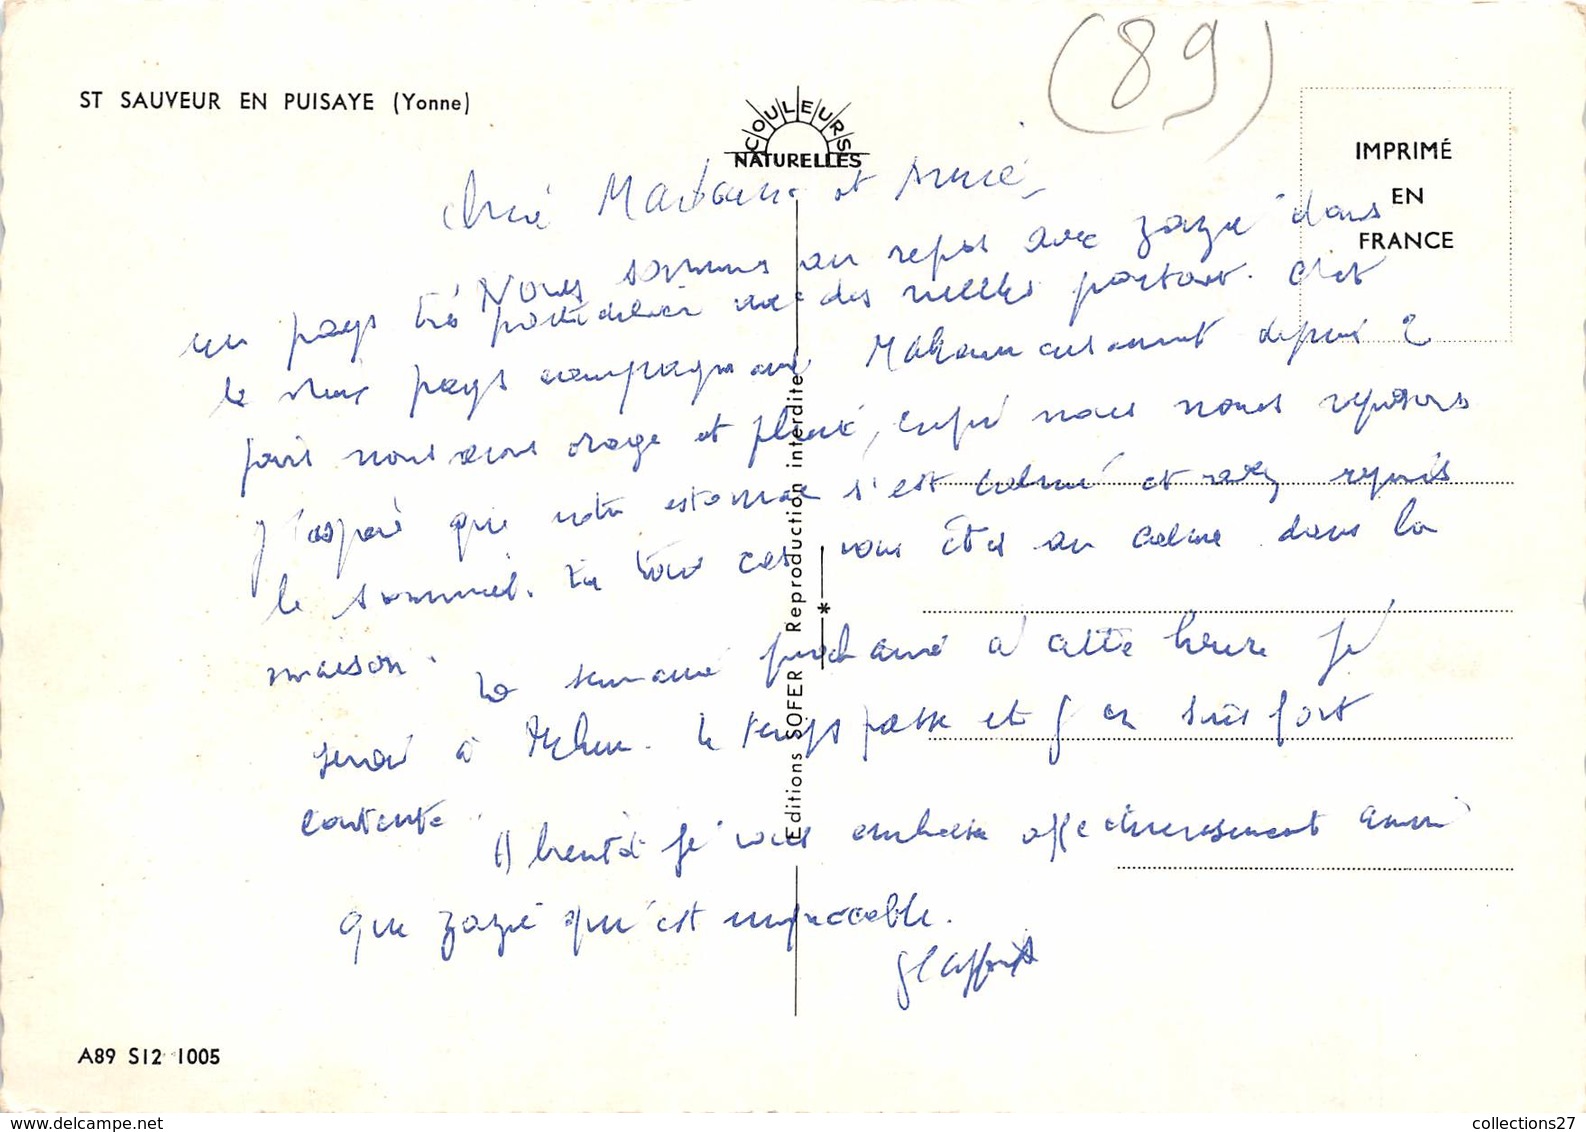 (89)
ST SAUVEUR EN PUISAYE (Yonne)
COULEURS
NATURELLES
IMPRIMÉ
EN
FRANCE
et Aimée,
Nous sommes au repos avec Zazie dans
un pays très particulier avec des ruelles partout. C'est
le vrai pays campagnard depuis 2
jours nous avons orage et pluie, enfin nous nous reposons
J'espère que votre estomac s'est calmé et avez repris
le sommeil. En tout cas vous êtes au calme dans la
maison. La semaine prochaine à cette heure je
serai à Melun. Le temps passe et j'en suis fort
contente.
A bientôt je vous embrasse affectueusement ainsi
que Zazie qu'est impeccable.
Editions SOFER Reproduction interdite
*
A89 S12 1005
collections27